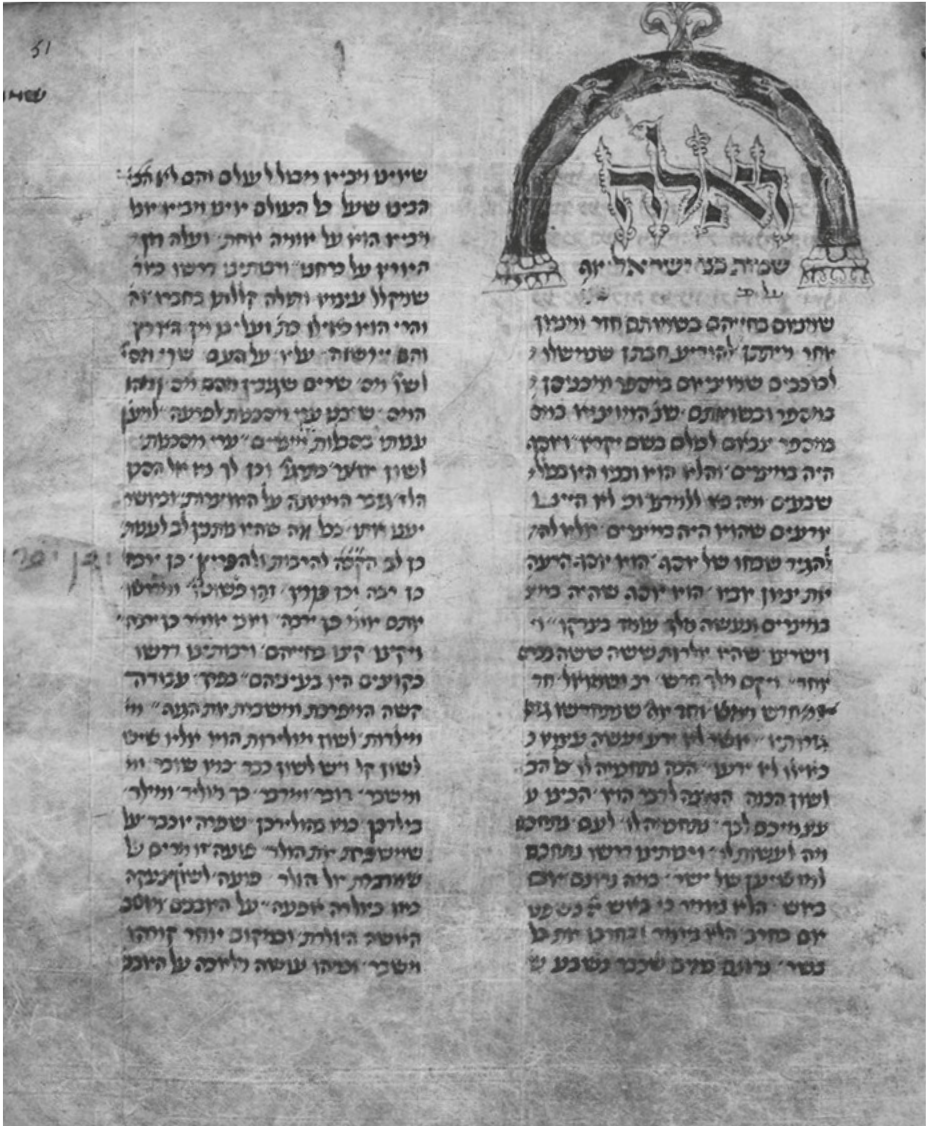 ואלה
שמות בני ישראל אף
על פי
שמנאם בחייהם בשמותם חזר ומנאן
אחר מיתתן להודיע חבתן שנמשלו ל
לכוכבים שמוציאם במספר ומכניסן
במספר ובשמותם שנ' המוציא במס
במספר צבאם לכולם בשם יקרא ויוסף
היה במצרים והלא הוא ובניו היו בכלל
שבעים ומה בא ללמדנו וכי לא היינו
יודעים שהוא היה במצרים אלא לה
להגיד שבחו של יוסף הוא יוסף הרעה
את צאן אביו הוא יוסף שהיה במצ
במצרים ונעשה מלך עומד בצדקו וי
וישרצו שהיו יולדות ששה ששה בכרס
אחד ויקם מלך חדש רב ושמואל חד
חדש ממש וחד אמ' שנתחדשו גזר
גזרותיו אשר לא ידע עשה עצמו כ
כאילו לא ידעו הבה נתחכמה לו כל הב
לשון הכנה הזמנה לדבר הוא הכינו ע
עצמיכם לכך נתחכמה לו לעם נתחכם
מה לעשות לו ורבותינו דרשו נתחכם
למושיען של ישר' במה נדונם אם
באש הלא נאמר כי באש יי נשפט
אם בחרב הלא נאמר ובחרבו את כל
בשר נדונם במים שכבר נשבע ש
51
שמות
שאינו מביא מבול לעולם והם לא הבי
הבינו שעל כל העולם אינו מביא אבל
מביא הוא על אומה אחת ועלה מן
הארץ על כרחנו ורבותינו דרשו כאד
שמקלל עצמו ותולה קללתו בחברו וה
והרי הוא כאילו כת' ועלינו מן הארץ
והם יירשוה עליו על העם שרי מס
לשון מס שרים שגובין מהם מס ומהו
המס שיבנו ערי מסכנות לפרעה למען
ענותו בסבלות מצרים ערי מסכנות
לשון אוצר כתרגו' וכן לך בא אל הסכן
הלז גזבר הממונה על האוצרות וכאשר
יענו אותו בכל מה שהיו נתנין לב לענות
כן לב הקבה להרבות ולהפריץ כן ירבה
כן רבה וכן פרץ זהו פשוטו ומדרשו
אותם אומ' כן ירבה אומר כן ירבה
ויקוצו קצו בחייהם ורבותינו דרשו
כקוצים היו בעיניהם בפרך עבודה
קשה המפרכת ומשברת את הגוף מי
מילדות לשון מולידות הוא אלא שיש
לשון קל ויש לשון כבד כמו שובר ומ
ומשבר דובר ומדבר כך מוליד ומילד
בילדכן כמו בהולידכן שפרה יוכבד על
שמשפרת את הולד פועה זו מרים ש
שמדברת אל הולד פועה לשון צעקה
כמו כיולדה אפעה על האבנים מושב
האשה היולדת ובמקום אחר קוראהו
משבר וכמהו עושה מלאכה על האבנ